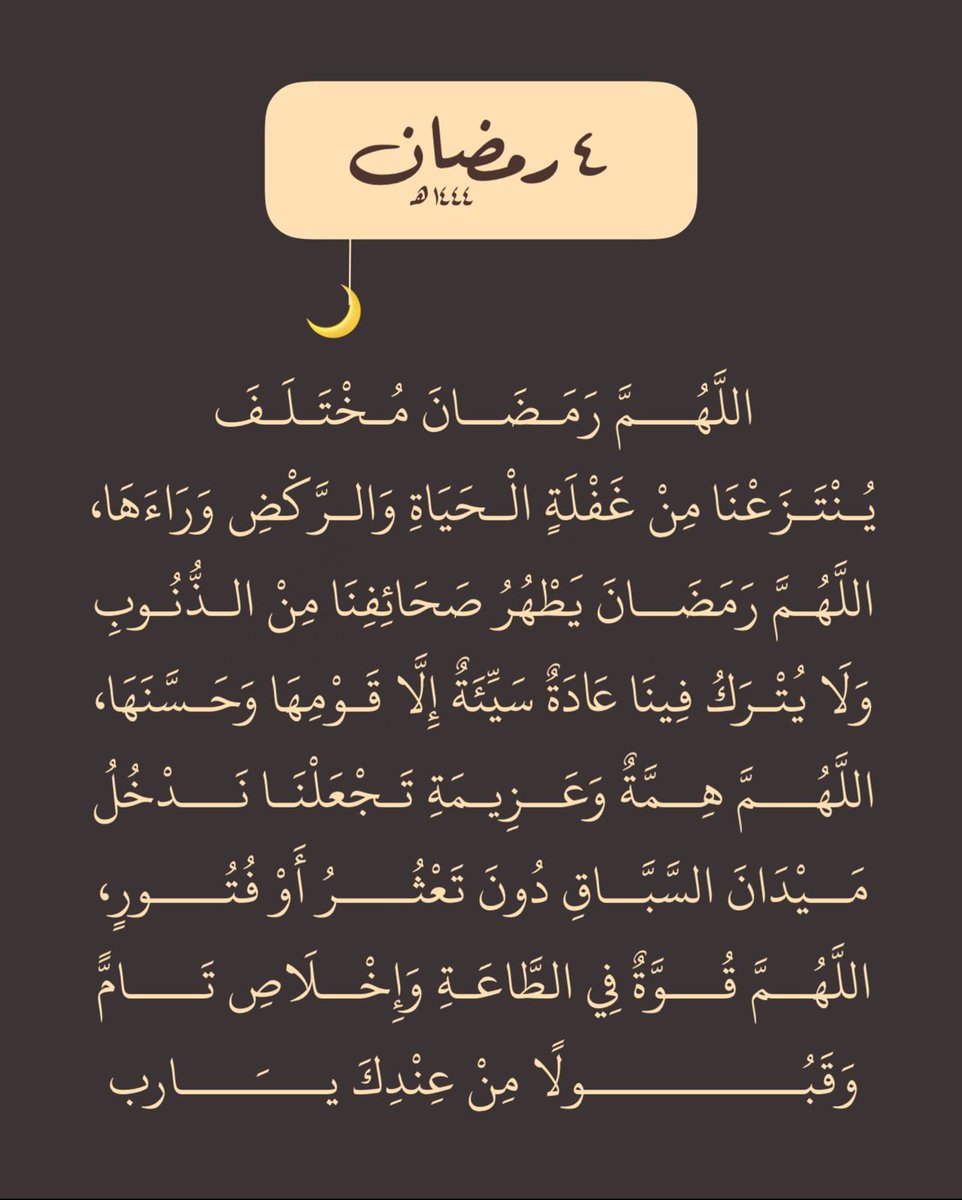 ٤ رمضان
١٤٤٤هـ
اللَّهُمَّ رَمَضَانَ مُخْتَلَفَ
يُنْتَزَعْنَا مِنْ غَفْلَةٍ الْحَيَاةِ وَالرَّكْضِ وَرَاءَهَا،
اللَّهُمَّ رَمَضَانَ يَطْهُرُ صَحَائِفِنَا مِنْ الذُّنُوبِ
وَلَا يُتْرَكُ فِينَا عَادَةٌ سَيِّئَةٌ إِلَّا قَوْمِهَا وَحَسَّنَهَا،
اللَّهُمَّ هِمَّةٌ وَعَزِيمَةِ تَجْعَلْنَا نَدْخُلُ
مَيْدَانَ السَّبَّاقِ دُونَ تَعْثُرُ أَوْ فُتُورٍ،
اللَّهُمَّ قُوَّةٌ فِي الطَّاعَةِ وَإِخْلَاصِ تَامًّ
وَقَبُولًا مِنْ عِنْدِكَ يَارب